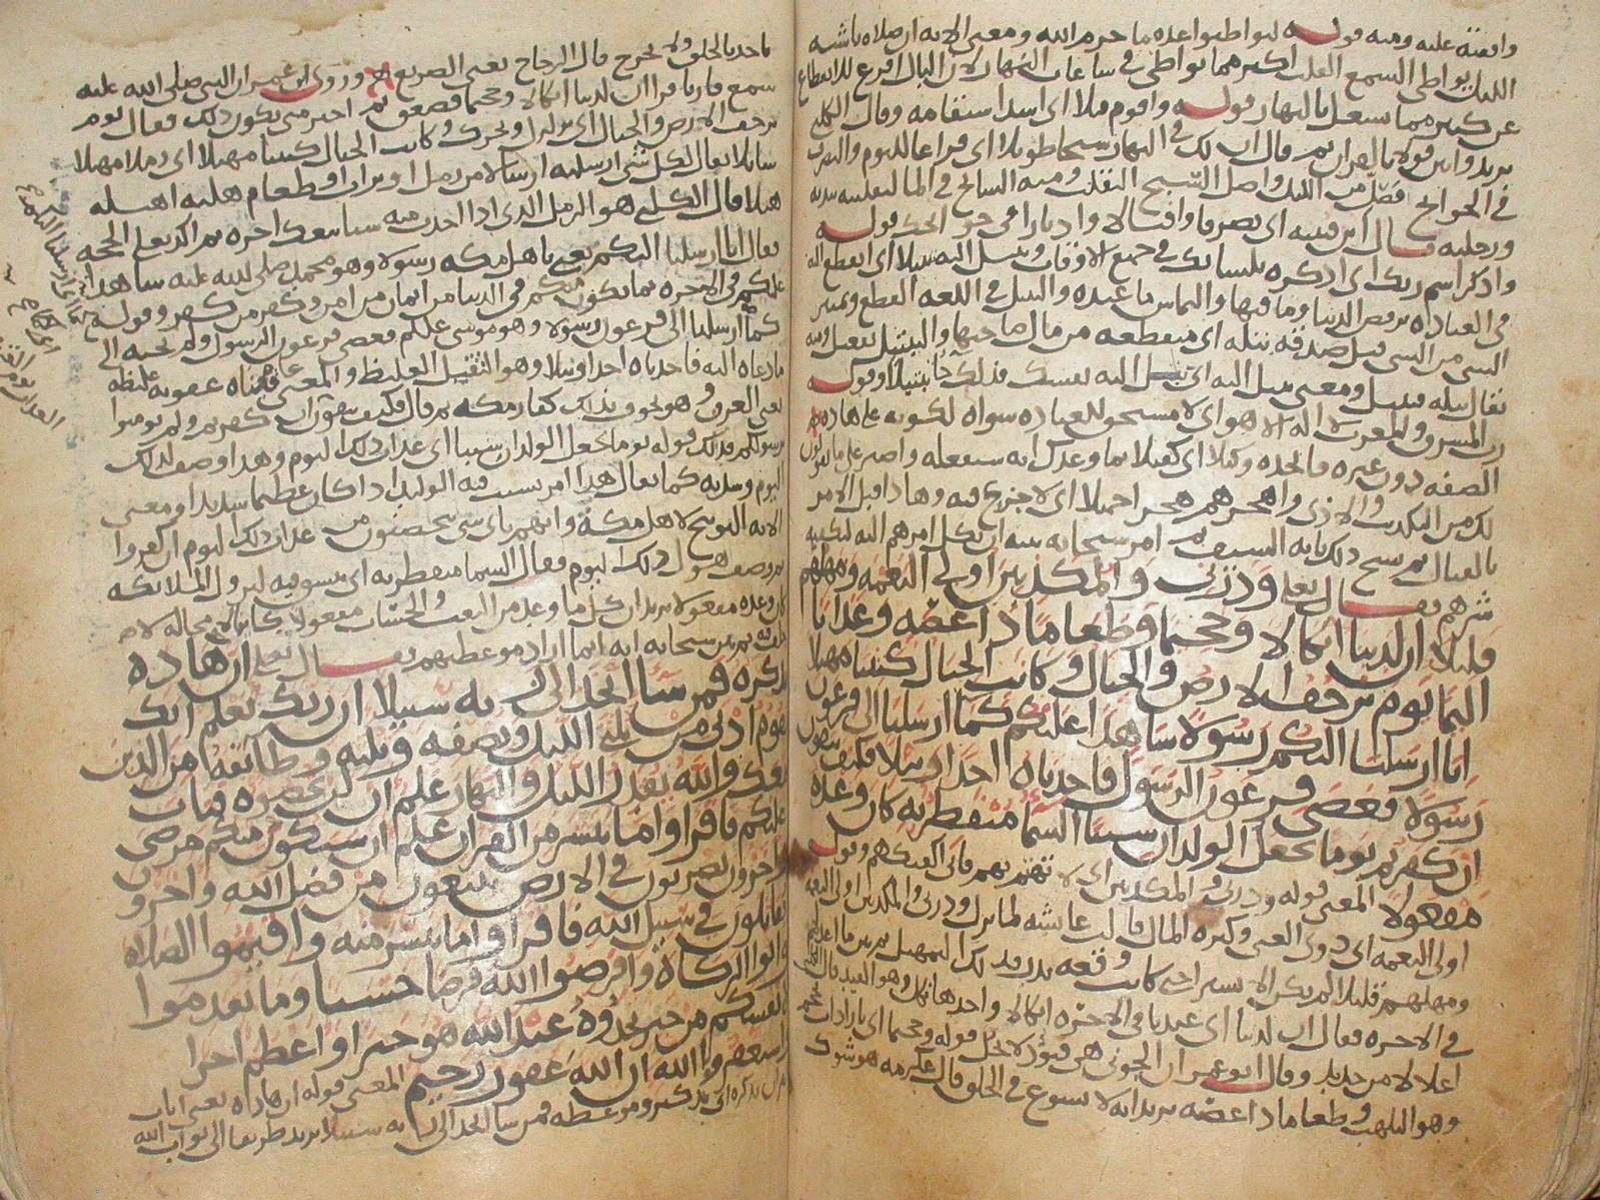 وافقته عليه ومنه قوله ليواطئوا عدة ما حرم الله ومعنى الاية ان صلاه ناشية
الليل يواطي السمع القلب اكثر مما يواطي في ساعات النهار لان البال افرغ للانقطاع
عن كثير مما يشغل بالنهار قوله واقوم قيلا اي اسد استقامه وقال الكلبي
يريد وابين قولا بالقران ثم قال ان لك في النهار سبحا طويلا اي فراغا للنوم والتصرف
في الحوايج فصل من الليل واصل السبح التقلب ومنه السابح في الما لتقلبه بيديه
ورجليه قال ابن قتيبه اي تصرفا واقبالا وادبارا في حوايجك قوله
واذكر اسم ربك اي اذكره بلسانك في جميع الاوقات وتبتل اليه تبتيلا اي انقطع اليه
في العباده ترفض الدنيا وما فيها والتماس ما عنده والبتل في اللغه القطع وتمييز
الشي من الشي قيل صدقه بتله اي منقطعه من مال صاحبها والتبتيل تفعيل منه
يقال بتله تبتيل ومعنى تبتل اليه اي بتل اليه نفسك فلذلك جا تبتيلا وقوله
رب المشرق والمغرب لا اله الا هو اي لا مستحق للعباده سواه لكونه على هاذه
الصفه دون غيره فاتخذه وكيلا اي كفيلا بما وعدك انه سيفعله واصبر على ما يقولون
لك من التكذيب والاذى واهجرهم هجرا جميلا اي لا جزع فيه وهاذا قبل الامر
بالقتال ثم نسخ ذلك باية السيف ثم امر سبحانه نبيه ان يكل امرهم اليه ليكفيه
شرهم فقال تعلى وذرني والمكذبين اولي النعمه ومهلهم
قليلا ان لدينا انكالا وجحيما وطعاما ذا غصه وعذابا
اليما يوم ترجف الارض والجبال وكانت الجبال كثيبا مهيلا
انا ارسلنا اليكم رسولا شاهدا عليكم كما ارسلنا الى فرعون
رسولا فعصى فرعون الرسول فاخذناه اخذا وبيلا فكيف تتقون
ان كفرتم يوما يجعل الولدان شيبا السما منفطر به كان وعده
مفعولا المعنى قوله وذرني والمكذبين اي لا تهتم بهم فاني اكفيكهم وقوله
اولي النعمه اي ذوي الغنى وكثره المال قالت عائشه لما نزلت وذرني والمكذبين اولي النعمه
ومهلهم قليلا لم يكن الا يسيرا حتى كانت وقعه بدر
في الاخره فقال ان لدينا اي عندنا في الاخره انكالا واحدها نكل وهو القيد قال الكلبي
اغلالا من حديد وقال ابو عمران الجوني هي قيود لا تحل قوله وجحيما اي نارا ذات
وهو اللهب وطعاما ذا غصه يريد انه لا يسوغ في الحلق قال عكرمه هو شوك
ياخذ بالحلق ولا يخرج قال الزجاج يعني الضريع وروى ابن عمر ان النبي صلى الله عليه
سمع قاريا قرا ان لدينا انكالا وجحيما فصعق ثم اخبر متى يكون ذلك فقال يوم
ترجف الارض والجبال اي تزلزل وتحرك وكانت الجبال كثيبا مهيلا اي رملا مهيلا
سائلا يقال لكل شي ارسلته ارسالا من رمل او تراب او طعام هلته اهيله
هيلا قال الكلبي هو الرمل الذي اذا اخذت منه شيا تبعك اخره ثم اكد تعلى الحجه
فقال انا ارسلنا اليكم يعني ياهل مكه رسولا وهو محمد صلى الله عليه شاهدا
عليكم في الاخره بما يكون منكم في الدنيا من ايمان من امن وكفر من كفر وقوله
كما ارسلنا الى فرعون رسولا وهو موسى عليلم فعصى فرعون الرسول ولم يجبه الى
ما دعاه اليه فاخذناه اخذا وبيلا وهو الثقيل الغليظ والمعنى عاقبناه عقوبه غليظه
يعني الغرق وهو تخوف بذلك كفار مكه ثم قال فكيف تتقون ان كفرتم ولم تومنوا
برسولكم فذلك قوله يوما يجعل الولدان شيبا اي عذاب ذلك اليوم وهذا وصف لذلك
اليوم وشدته كما يقال هذا امر يشيب فيه الوليد اذا كان عظيما شديدا ومعنى
الاية التوبيخ لاهل مكه وانهم باي شي يتحصنون من عذاب ذلك اليوم ان كفروا
ثم وصف هول ذلك اليوم فقال السما منفطر به اي منشق فيه لنزول الملائكه
كان وعده مفعولا يريد ان كل ما وعد من البعث والحساب مفعولا كائنا لا محاله لا
ثم بين سبحانه انه انما اراد موعظتهم فقال تعلى ان هاذه
تذكره فمن شا اتخذ الى ربه سبيلا ان ربك يعلم انك
تقوم ادنى من ثلثي الليل ونصفه وثلثه وطائفه من الذين
معك والله يقدر الليل والنهار علم ان لن تحصوه فتاب
عليكم فاقراوا ما تيسر من القران علم ان سيكون منكم مرضى
واخرون يضربون في الارض يبتغون من فضل الله واخرون
يقاتلون في سبيل الله فاقراوا ما تيسر منه واقيموا الصلاه
واتوا الزكاه واقرضوا الله قرضا حسنا وما تقدموا
لانفسكم من خير تجدوه عند الله هو خيرا واعظم اجرا
واستغفروا الله ان الله غفور رحيم المعنى قوله ان هاذه يعني ايات
القران تذكره اي تذكير وموعظه فمن شا اتخذ الى ربه سبيلا يريد طريقا الى ثواب الله